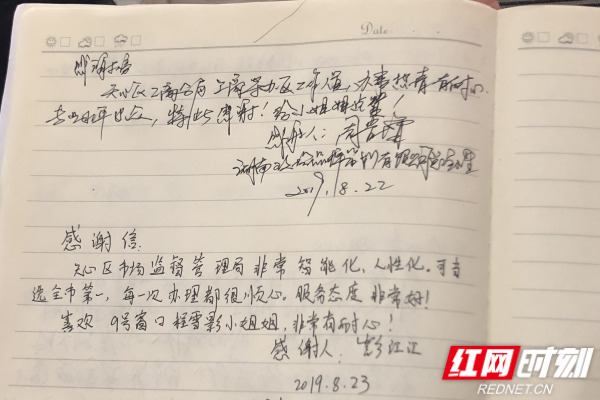 Date
感谢信
天心区工商分局 工商登记办区工作人员，办事热情 有耐心
专业水平出众，特此感谢！给小姐姐点赞！
感谢人：
湖南
2019.8.22
感谢信：
天心区市场监督管理局非常智能化，人性化。可当
选全市第一，每一次办理都很顺心。服务态度非常好！
喜欢 9号窗口程雪影小姐姐，非常有耐心！
感谢人：彭江江
2019.8.23
红网时刻
REDNET.CN